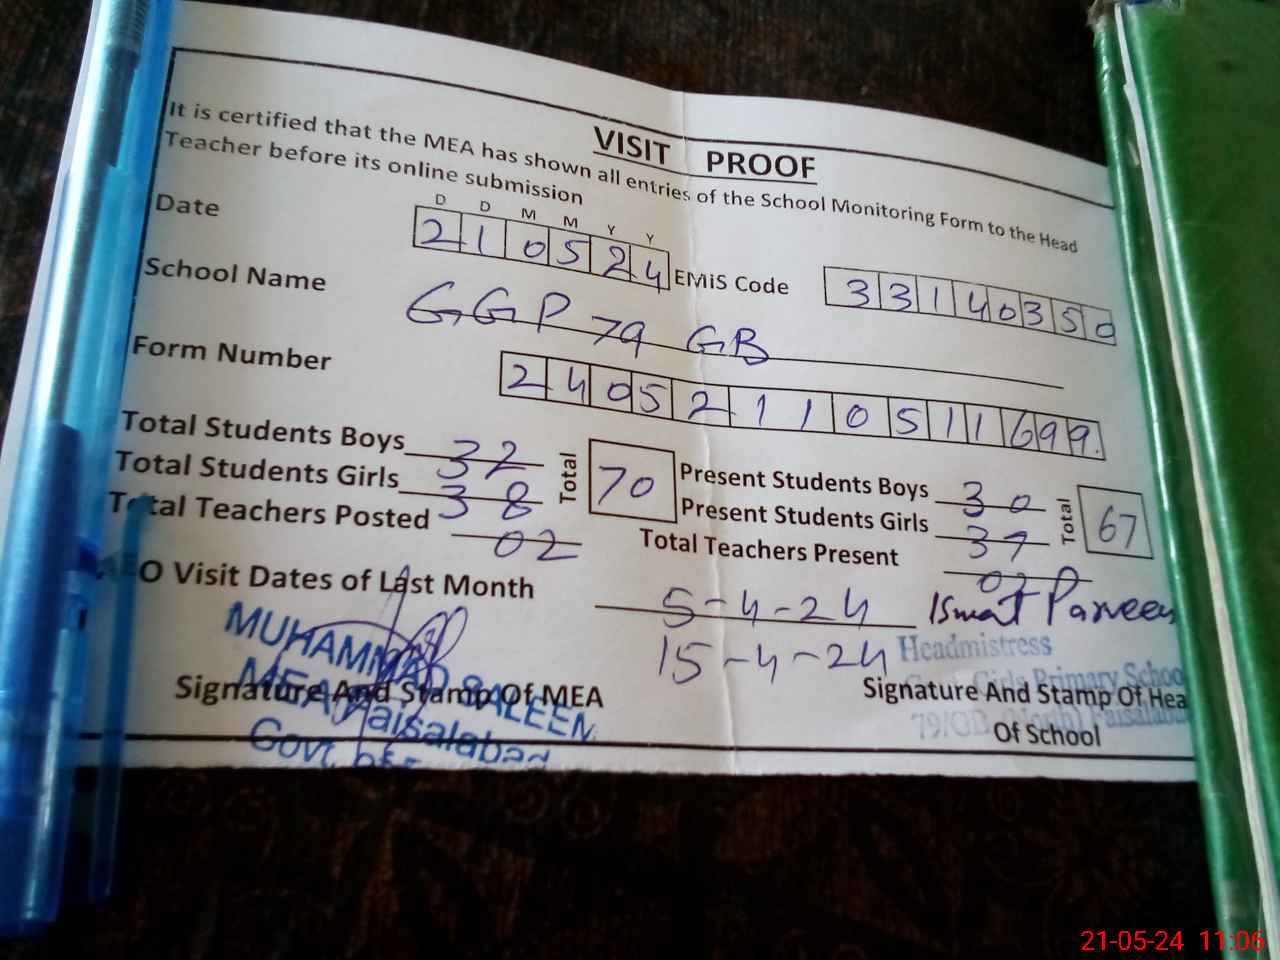 VISIT PROOF
It is certified that the MEA has shown all entries of the School Monitoring Form to the Head
Teacher before its online submission
D D M M Y Y
Date 210524 EMiS Code 33140350
School Name GGP 79 GB
Form Number 24052110511699.
Total Students Boys 32 Total 70 Present Students Boys 30 Total 67
Total Students Girls 38 Present Students Girls 37
Total Teachers Posted 02 Total Teachers Present 02
AEO Visit Dates of Last Month 5-4-24 Ismat Parveen
15-4-24
MUHAMMAD SALEEM
MEA Faisalabad
Govt. of
Signature And Stamp Of MEA
Headmistress
Girls Primary School
79/GB Faisalabad
Signature And Stamp Of Hea
Of School
21-05-24 11:06